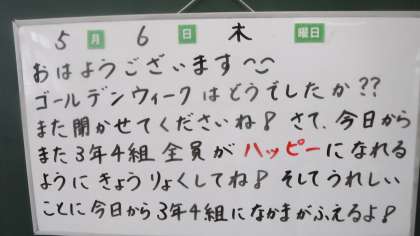 5月6日木曜日
おはようございます^^
ゴールデンウィークはどうでしたか??
また聞かせてくださいね! さて、今日から
また3年4組全員がハッピーになれる
ようにきょうりょくしてね! そしてうれしい
ことに今日から3年4組になかまがふえるよ!